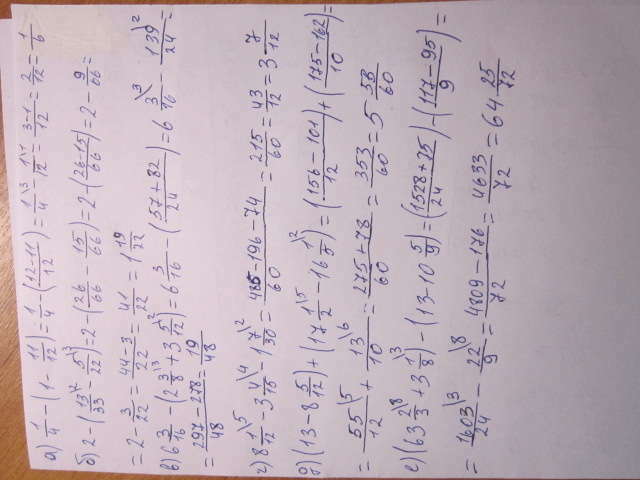 а) 1/4 - (1 - 11/12) = 1/4 - (12-11/12) = 1\3/4 - 1\1/12 = 3-1/12 = 2/12 = 1/6
б) 2 - (13\2/33 - 5\3/22) = 2 - (26/66 - 15/66) = 2 - (26-15/66) = 2 - 9/66 =
= 2 - 3/22 = 44-3/22 = 41/22 = 1 19/22
в) 6 3/16 - (2 3\3/8 + 3 5\2/12) = 6 3/16 - (57+82/24) = 6 3\3/16 - 139\2/24 =
= 297-278/48 = 19/48
г) 8 1\5/12 - 3 4\4/15 - 1 7\2/30 = 485-196-74/60 = 215/60 = 43/12 = 3 7/12
д) (13 - 8 5/12) + (17 1\5/2 - 16 1\2/5) = (156-101/12) + (175-162/10) =
= 55\5/12 + 13\6/10 = 275+78/60 = 353/60 = 5 53/60
е) (63 2\8/3 + 3 1\3/8) - (13 - 10 5/9) = (1528+75/24) - (117-95/9) =
= 1603\3/24 - 22\8/9 = 4809-176/72 = 4633/72 = 64 25/72